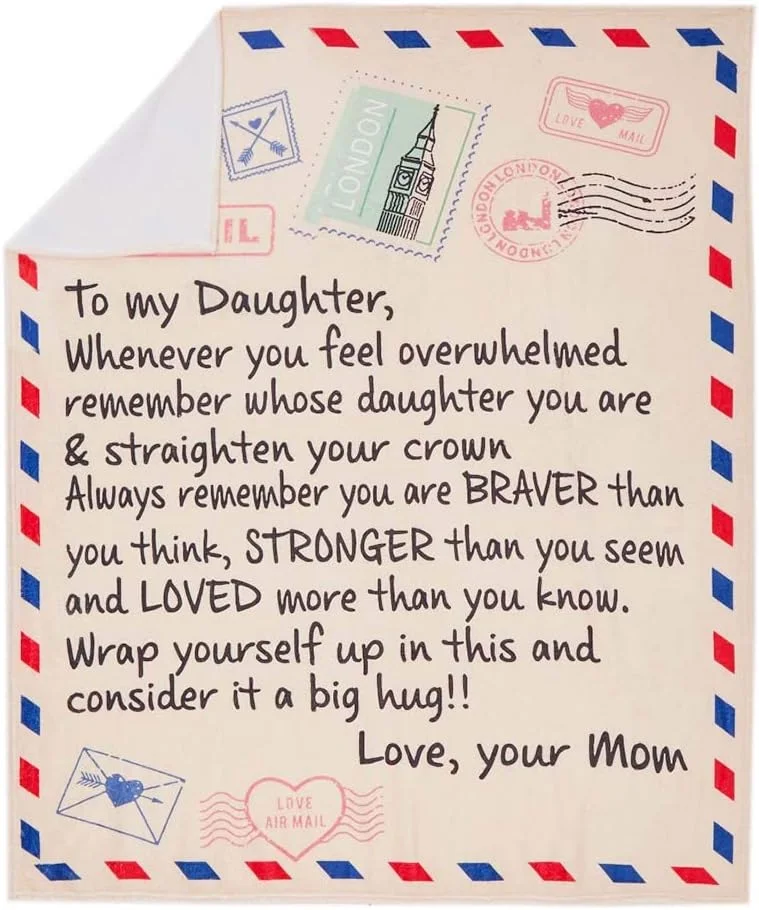 LONDON
LOVE
MAIL
LONDON LONDON LONDON LONDON
IL
To my Daughter,
Whenever you feel overwhelmed
remember whose daughter you are
& straighten your crown
Always remember you are BRAVER than
you think, STRONGER than you seem
and LOVED more than you know.
Wrap yourself up in this and
consider it a big hug!!
Love, your Mom
LOVE
AIR MAIL